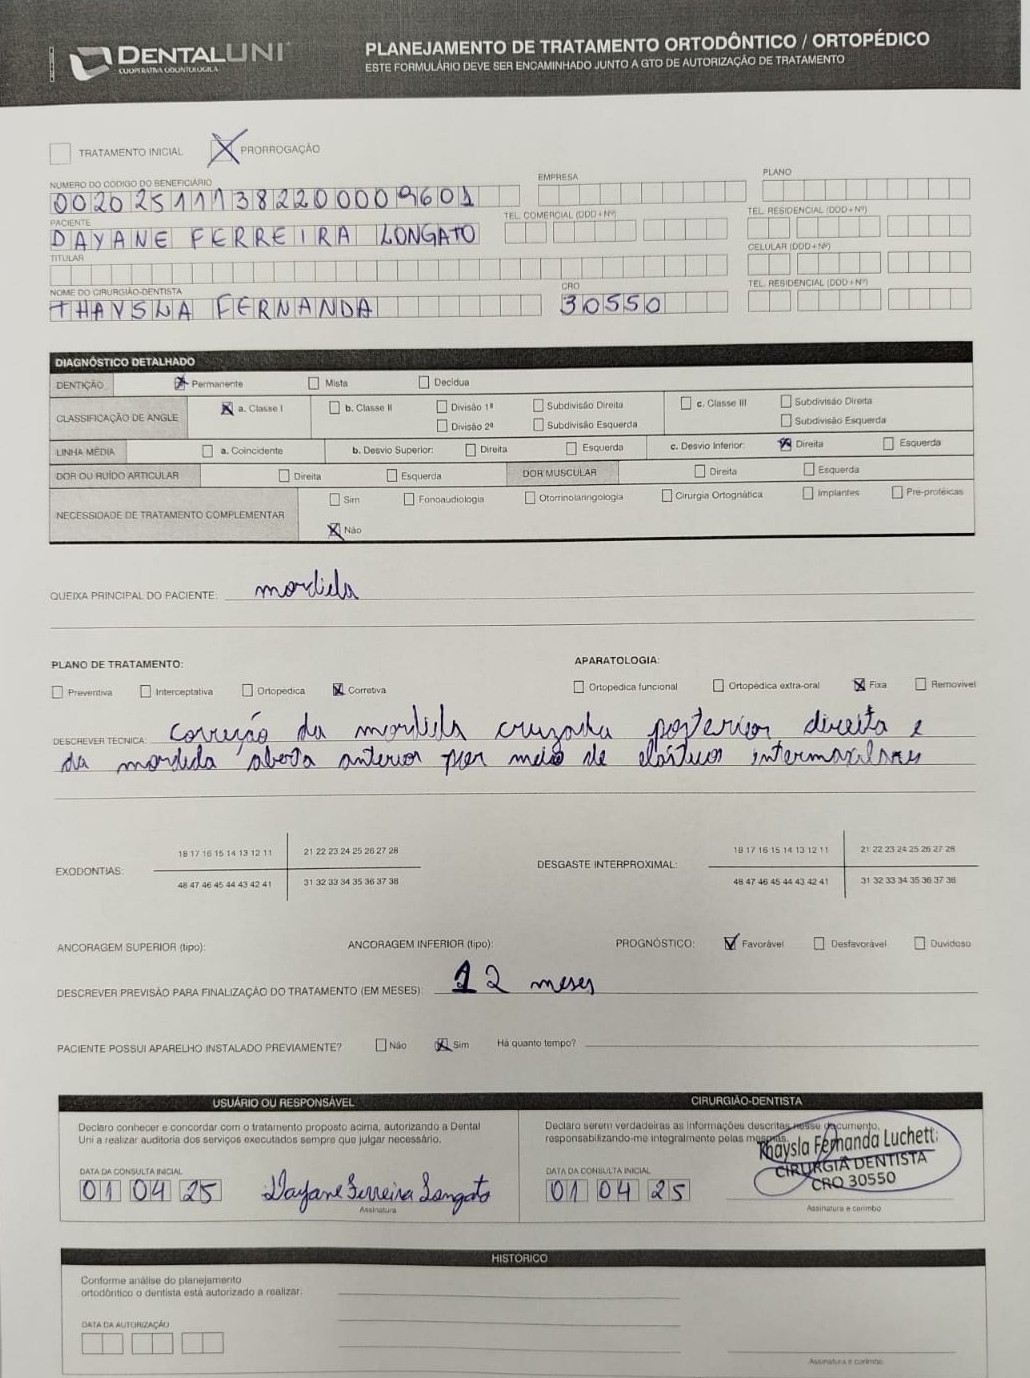 DENTALUNI
COOPERATIVA ODONTOLÓGICA
PLANEJAMENTO DE TRATAMENTO ORTODÔNTICO / ORTOPÉDICO
ESTE FORMULÁRIO DEVE SER ENCAMINHADO JUNTO A GTO DE AUTORIZAÇÃO DE TRATAMENTO
TRATAMENTO INICIAL PRORROGAÇÃO
NUMERO DO CÓDIGO DO BENEFICIÁRIO EMPRESA PLANO
002025111382200009601
PACIENTE TEL. COMERCIAL (DDD+Nº) TEL. RESIDENCIAL (DDD+Nº)
DAYANE FERREIRA LONGATO
TITULAR CELULAR (DDD+Nº)
NOME DO CIRURGIÃO-DENTISTA CRO TEL. RESIDENCIAL (DDD+Nº)
THAYSLA FERNANDA 30550
DIAGNÓSTICO DETALHADO
DENTIÇÃO Permanente Mista Decídua
CLASSIFICAÇÃO DE ANGLE a. Classe I b. Classe II Divisão 1ª Subdivisão Direita c. Classe III Subdivisão Direita
Divisão 2ª Subdivisão Esquerda Subdivisão Esquerda
LINHA MÉDIA a. Coincidente b. Desvio Superior: Direita Esquerda c. Desvio Inferior: Direita Esquerda
DOR OU RUÍDO ARTICULAR Direita Esquerda DOR MUSCULAR Direita Esquerda
NECESSIDADE DE TRATAMENTO COMPLEMENTAR Sim Fonoaudiologia Otorrinolaringologia Cirurgia Ortognática Implantes Pré-protéicas
Não
QUEIXA PRINCIPAL DO PACIENTE: mordida
PLANO DE TRATAMENTO: APARATOLOGIA:
Preventiva Interceptativa Ortopédica Corretiva Ortopédica funcional Ortopédica extra-oral Fixa Removível
DESCREVER TÉCNICA: correção da mordida cruzada posterior direita e
da mordida aberta anterior por meio de elásticos intermaxilares
18 17 16 15 14 13 12 11 21 22 23 24 25 26 27 28 18 17 16 15 14 13 12 11 21 22 23 24 25 26 27 28
EXODONTIAS: DESGASTE INTERPROXIMAL:
48 47 46 45 44 43 42 41 31 32 33 34 35 36 37 38 48 47 46 45 44 43 42 41 31 32 33 34 35 36 37 38
ANCORAGEM SUPERIOR (tipo): ANCORAGEM INFERIOR (tipo): PROGNÓSTICO: Favorável Desfavorável Duvidoso
DESCREVER PREVISÃO PARA FINALIZAÇÃO DO TRATAMENTO (EM MESES): 12 meses
PACIENTE POSSUI APARELHO INSTALADO PREVIAMENTE? Não Sim Há quanto tempo?
USUÁRIO OU RESPONSÁVEL CIRURGIÃO-DENTISTA
Declaro conhecer e concordar com o tratamento proposto acima, autorizando a Dental Declaro serem verdadeiras as informações descritas nesse documento,
Uni a realizar auditoria dos serviços executados sempre que julgar necessário. responsabilizando-me integralmente pelas mesmas.
Thaysla Fernanda Luchetti
CIRURGIÃ DENTISTA
CRO 30550
DATA DA CONSULTA INICIAL DATA DA CONSULTA INICIAL
01 04 25 Dayane Ferreira Longato 01 04 25
Assinatura Assinatura e carimbo
HISTÓRICO
Conforme análise do planejamento
ortodôntico o dentista está autorizado a realizar:
DATA DA AUTORIZAÇÃO
Assinatura e carimbo